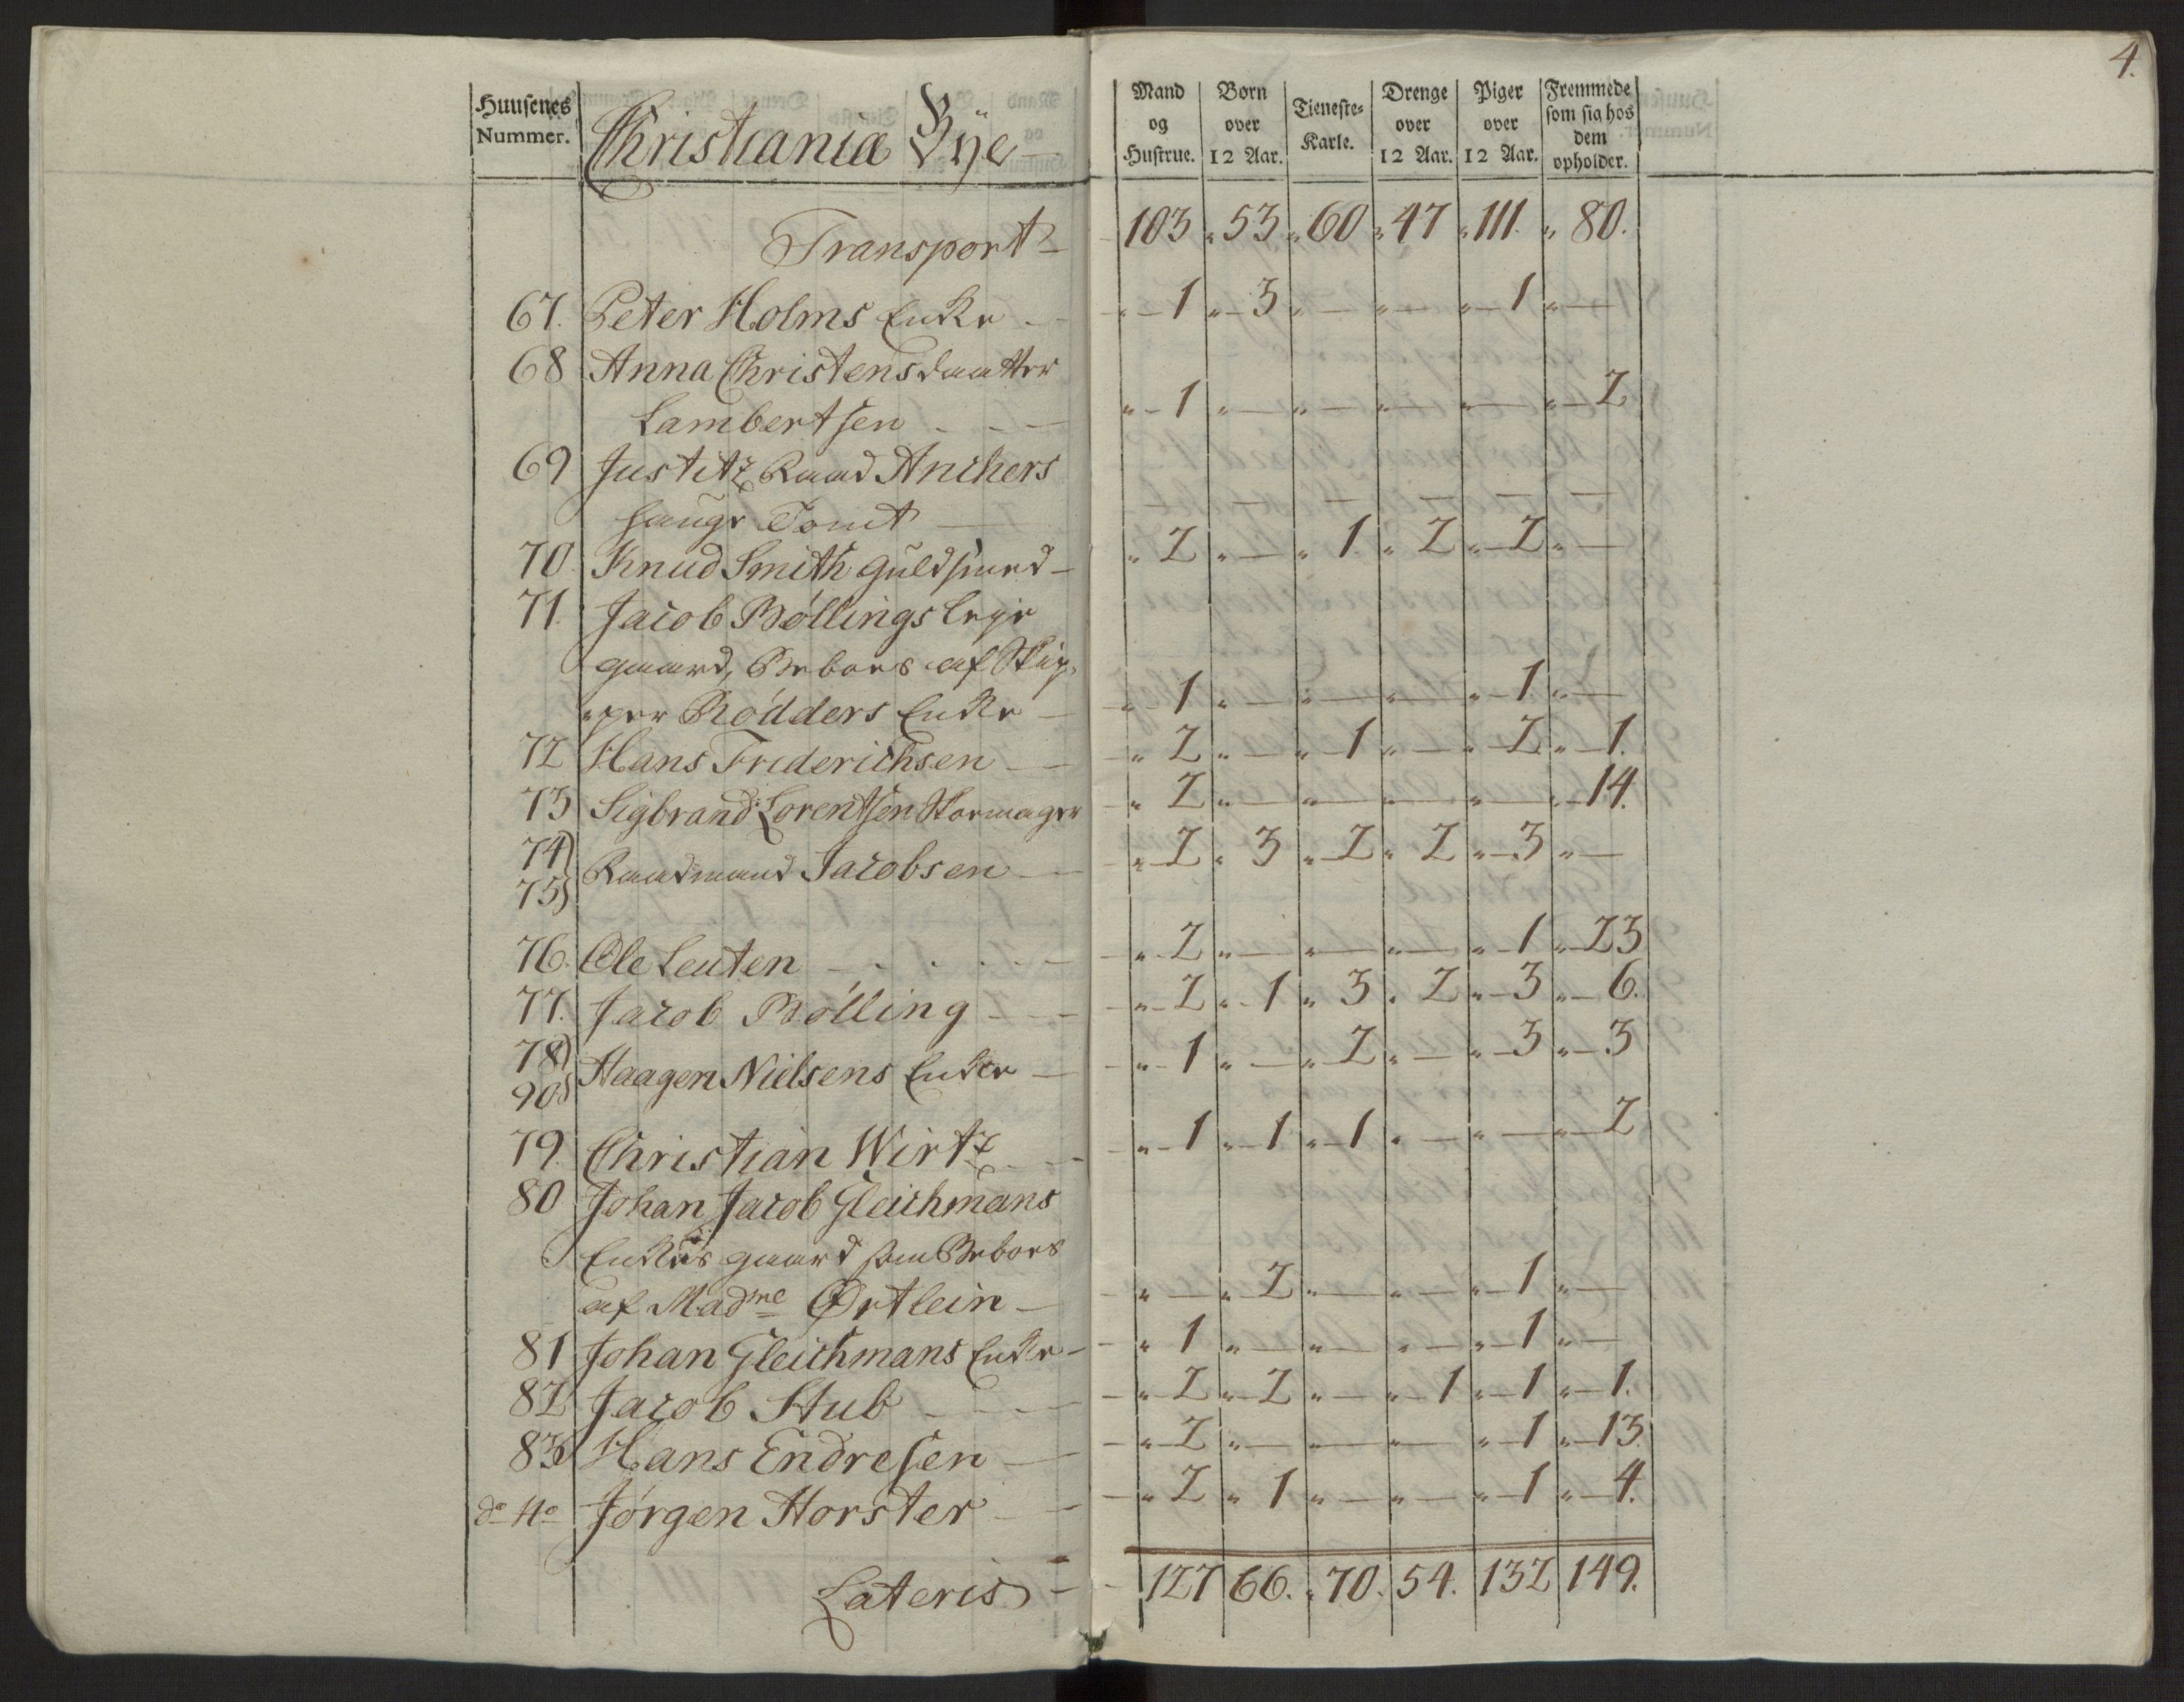 4.
Huusenes Nummer. | Christiania Bÿe | Mand og Hustrue. | Born over 12 Aar. | Tieneste-Karle. | Drenge over 12 Aar. | Piger over 12 Aar. | Fremmede som sig hos dem opholder.
Transport | 103 | 53 | 60 | 47 | 111. | 80.
67. Peter Holms Enke | 1 | 3 | — | — | 1 | —
68 Anna Christensdaatter
Lambertsen | 1 | — | — | — | — | 2
69 Justitz Raad Anchers
hauge Tomt | — | — | — | — | — | —
70 Knud Smith Guldsmed | 2 | — | 1. | 2 | 2 | —
71. Jacob Böllings leye
gaard, Beboes af Skip-
per Rödders Enke | 1 | — | — | — | 1 | —
72 Hans Friderichsen | 2 | — | 1 | — | 2 | 1.
73 Sigbrand Lorentsen Skomager | 2 | — | — | — | — | 14.
74)
75) Raadmand Jacobsen | 2 | 3 | 2 | 2 | 3 | —
76. Ole Leuten | 2 | — | — | — | 1 | 23
77. Jacob Bölling | 2 | 1 | 3 | 2 | 3 | 6.
78)
90) Haagen Nielsens Enke | 1 | — | 2 | — | 3 | 3
79. Christian Wirtz | 1 | 1 | 1 | — | — | 2
80 Johan Jacob Gleichmans
Enkes gaard som Beboes
af Madme Örtlein | — | 2 | — | — | 1 | —
81 Johan Gleichmans Enke | 1 | — | — | — | 1 | —
82 Jacob Stub | 2 | 2 | — | 1 | 1 | 1.
83 Hans Endresen | 2 | — | — | — | 1 | 13.
do No Jörgen Horster | 2 | 1 | — | — | 1 | 4.
Lateris | 127 | 66. | 70. | 54. | 132 | 149.